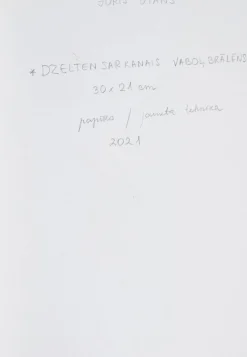 * DZELTENSARKANAIS VABOĻBRĀLĒNS
30 x 21 cm
papīrs / jaukta tehnika
2021